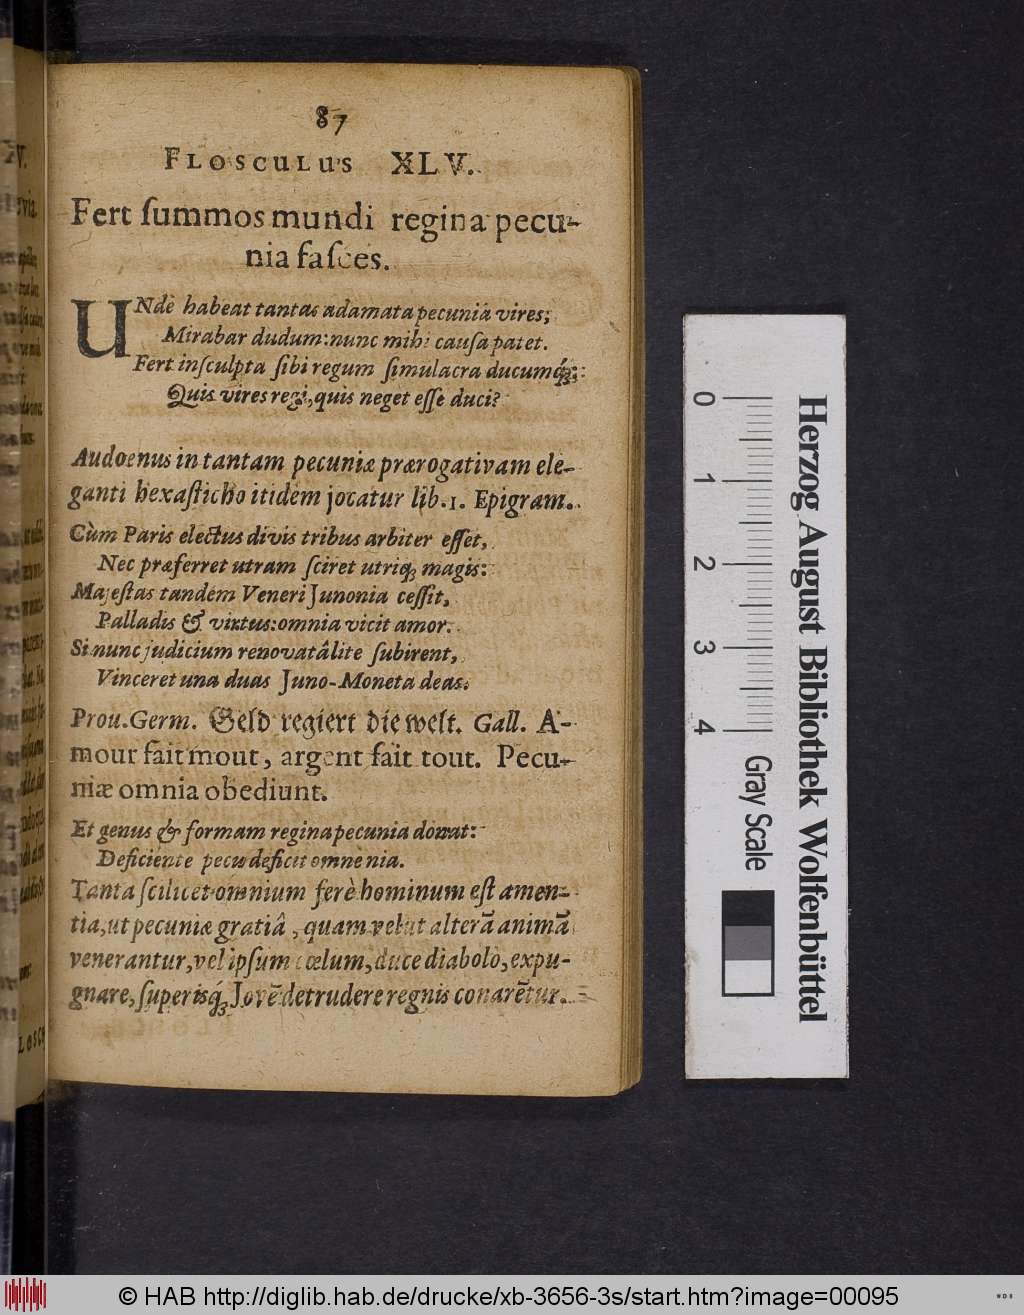 87
FLOSCULUS XLV.
Fert ſummos mundi regina pecu-
nia faſces.
UNdè habeat tantas adamata pecuniâ vires;
Mirabar dudum: nunc mihi cauſa patet.
Fert inſculpta ſibi regum ſimulacra ducumq́;:
Quis vires regi, quis neget eſſe duci?
Audoenus in tantam pecuniæ prærogativam ele-
ganti hexaſticho itidem jocatur lib. 1. Epigram.
Cùm Paris electus divis tribus arbiter eſſet,
Nec præferret utram ſciret utriq; magis:
Majeſtas tandem Veneri Junonia ceſſit,
Palladis & virtus: omnia vicit amor.
Si nunc judicium renovatâ lite ſubirent,
Vinceret una duas Juno-Moneta deas.
Prou. Germ. Geld regiert die welt. Gall. A-
mour fait mout, argent fait tout. Pecu-
niæ omnia obediunt.
Et genus & formam regina pecunia donat:
Deficiente pecu deficit omne nia.
Tanta ſcilicet omnium ferè hominum eſt amen-
tia, ut pecuniæ gratiâ, quam velut alterā animā
venerantur, vel ipſum cœlum, duce diabolo, expu-
gnare, ſuperisq́; Jovē detrudere regnis conarētur.
0
1
2
3
4
Gray Scale
Herzog August Bibliothek Wolfenbüttel
© HAB http://diglib.hab.de/drucke/xb-3656-3s/start.htm?image=00095